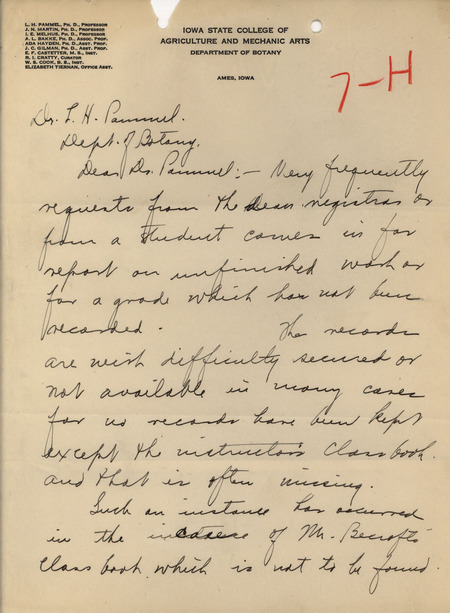 L. H. PAMMEL, PH. D., PROFESSOR
J. N. MARTIN, PH. D., PROFESSOR
I. E. MELHUS, PH. D., PROFESSOR
A. L. BAKKE, PH. D., ASSOC. PROF.
ADA HAYDEN, PH. D., ASST. PROF.
J. C. GILMAN, PH. D., ASST. PROF.
E. F. CASTETTER, M. S., INST.
R. I. CRATTY, CURATOR
W. S. COOK, B. S., INST.
ELIZABETH TIERNAN, OFFICE ASST.
IOWA STATE COLLEGE OF
AGRICULTURE AND MECHANIC ARTS
DEPARTMENT OF BOTANY
AMES, IOWA
7-H
Dr. L. H. Pammel.
Dept. of Botany.
Dear Dr. Pammel:- Very frequently
requests from the dean registrar or
from a student comes in for
report on unfinished work or
for a grade which has not been
recorded. The records
are with difficulty secured or
not available in many cases
for no records have been kept
except the instructors class book
and that is often missing.
Such an instance has occurred
in the case of Mr. Becroft's
class book which is not to be found.